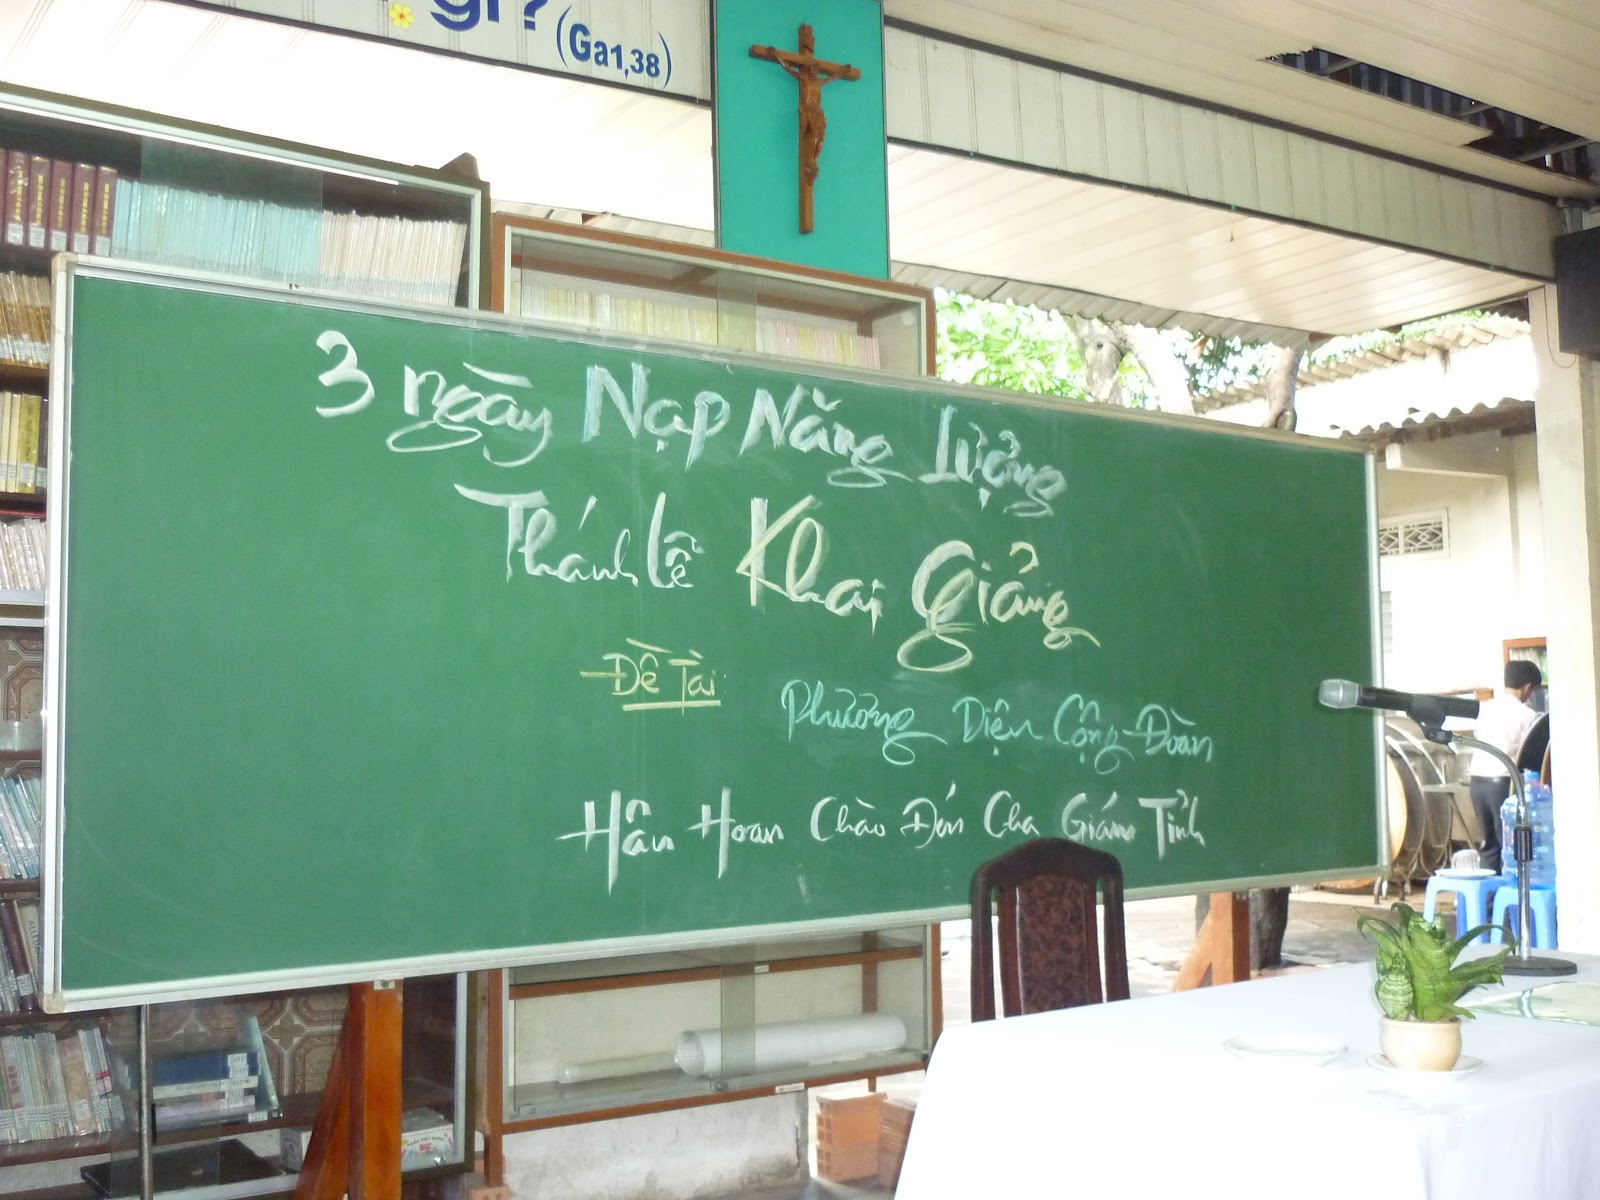 gì? (Ga1,38)
3 ngày Nạp Năng Lượng
Thánh Lễ Khai Giảng
Đề Tài:
Phương Diện Cộng Đoàn
Hân Hoan Chào Đón Cha Giám Tỉnh